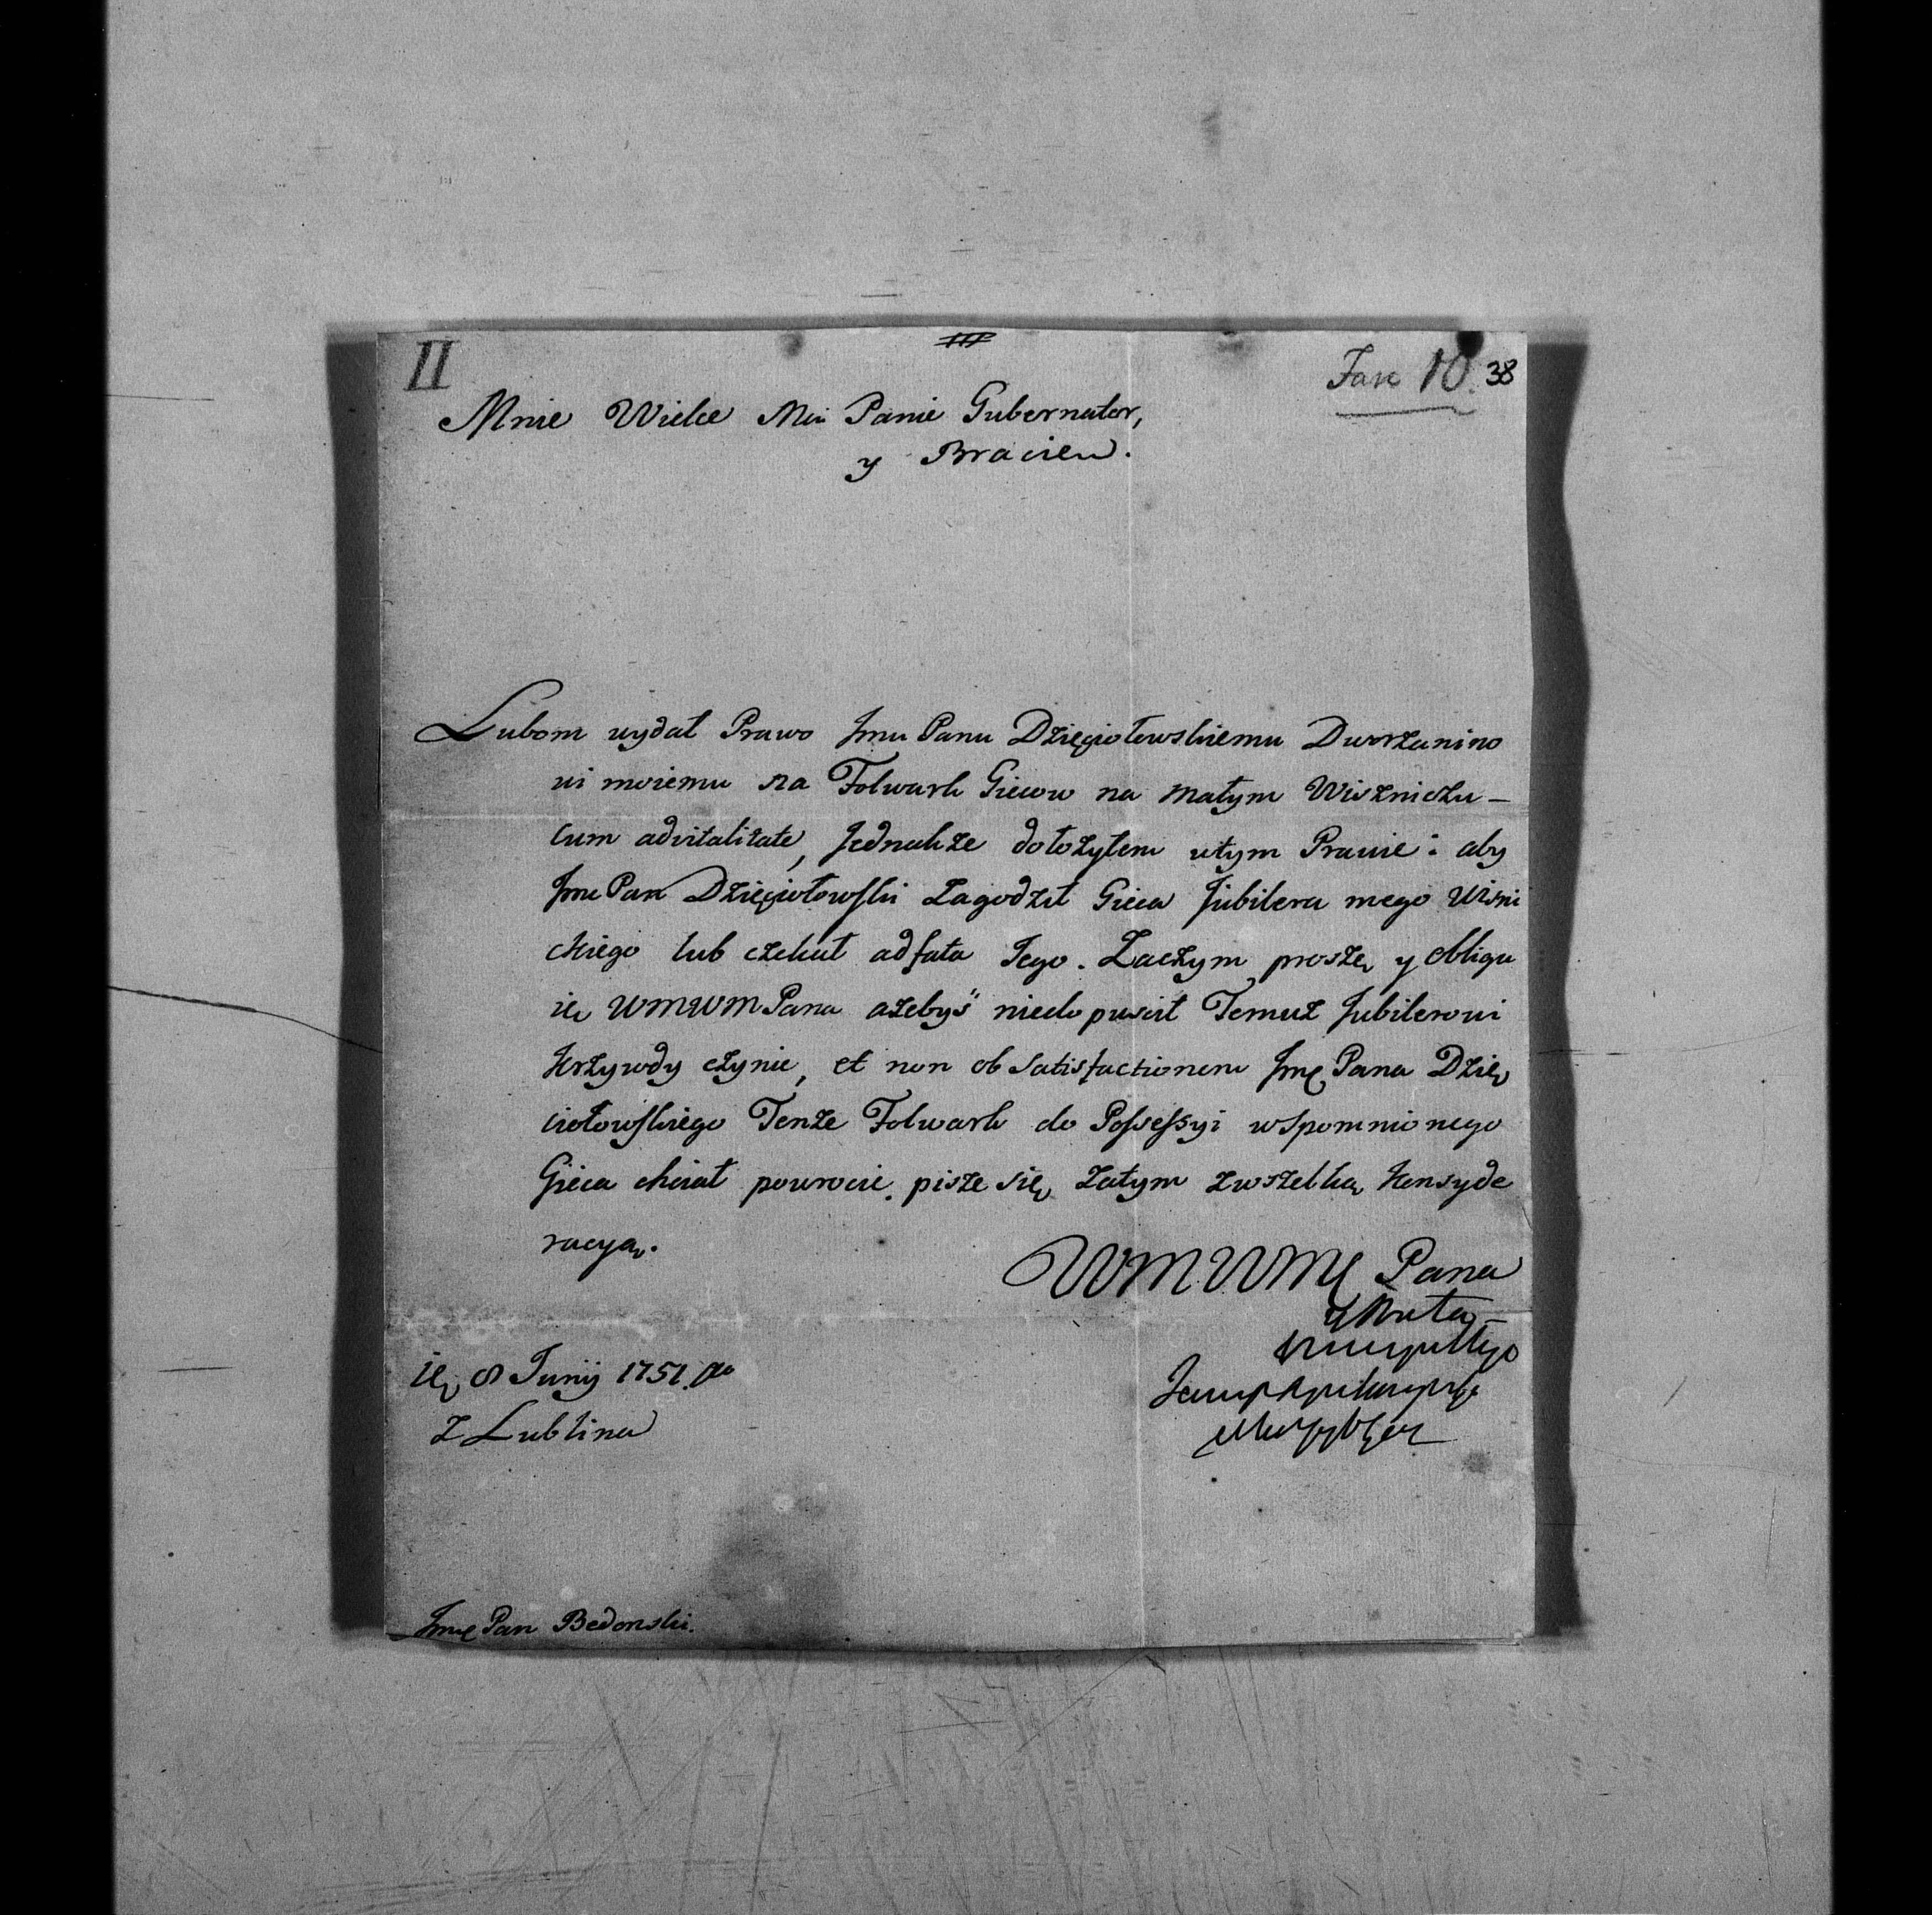 II
Fasc 10. 38
Mnie Wielce Mci Panie Gubernator,
y Bracie.
Lubom wydał Prawo Jmu Panu Dzięgiołowskiemu Dworzanino
wi moiemu na Folwark Giecow na małym Wiszniczu –
cum advitalitate, Jednakże dołożyłem wtym Prawie: aby
Jmc Pan Dzięgiołowski zagodził Gieca Jubilera mego Wisni
ckiego lub czekał ad fata Jego. Zaczym proszę y obligu
ię WMWM Pana ażebyś niedopuscił Temuż Jubilerowi
krzywdy czynic, et non ob satisfactionem Jmc Pana Dzię
ciołowskiego Tenże Folwark do Possessyi wspomnionego
Gieca chciał powrocic. pisze się zatym zwszelką konsyde
racyą.
WMWMC Pana
die 8 Junij 1751. Ao
z Lublina
Jmc Pan Bedonski.